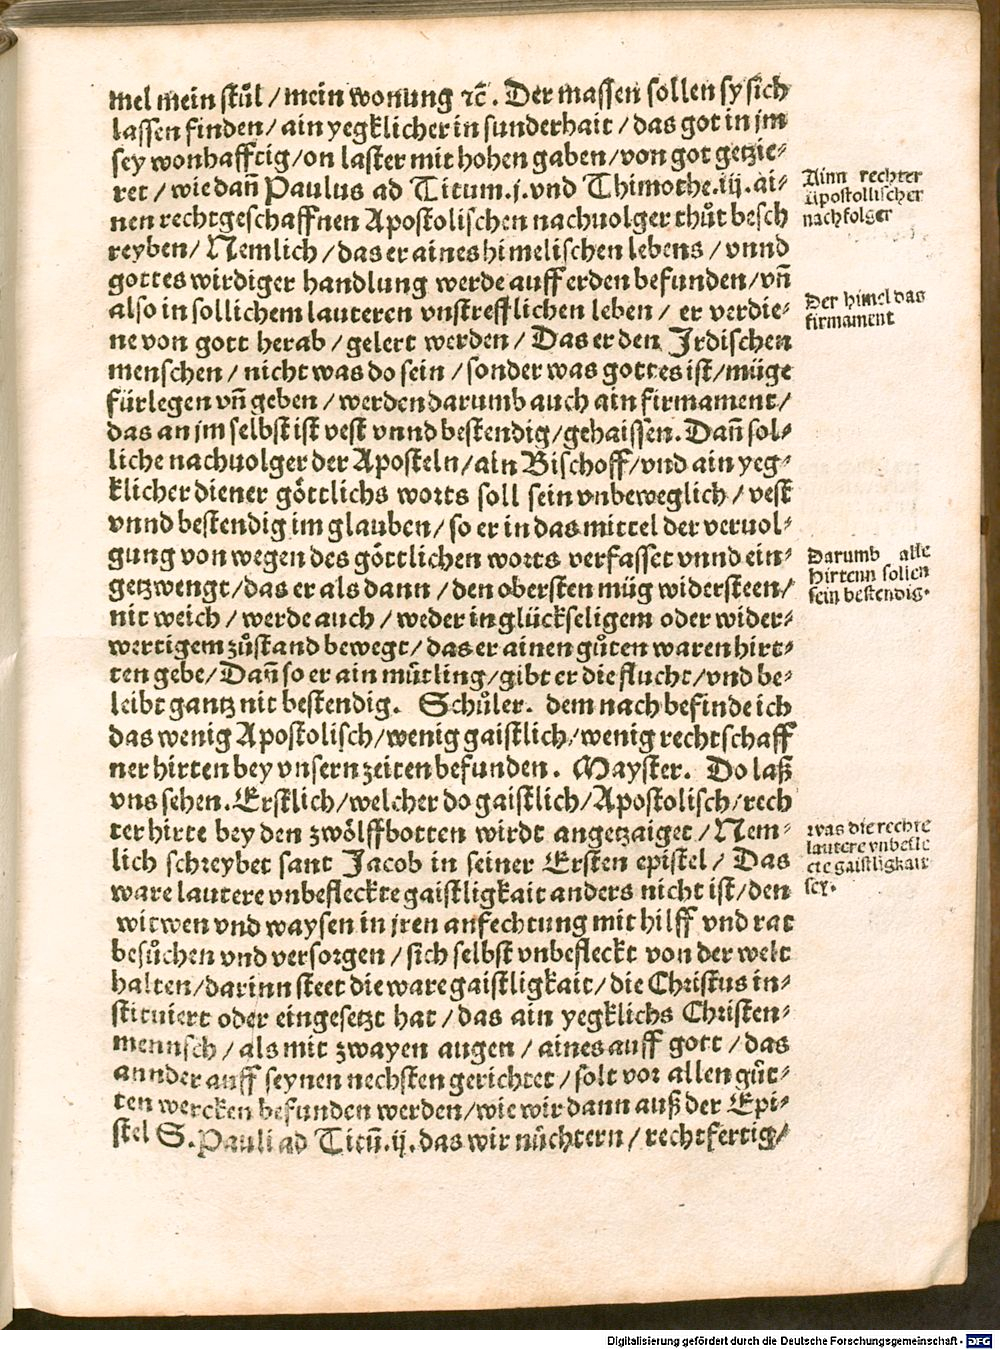 mel mein stůl / mein wonung ꝛc̃. Der massen sollen sy sich
lassen finden / ain yegklicher in sunderhait / das got in jm
sey wonhafftig / on laster mit hohen gaben / von got getzie⸗
ret / wie dañ Paulus ad Titum. j. vnd Thimothe. iij. ai⸗
nen rechtgeschaffnen Apostolischen nachuolger thůt besch
reyben / Nemlich / das er aines himelischen lebens / vnnd
gottes wirdiger handlung werde auff erden befunden / vñ
also in sollichem lauteren vnstrefflichen leben / er verdie⸗
ne von gott herab / gelert werden / Das er den Jrdischen
menschen / nicht was do sein / sonder was gottes ist / müge
fürlegen vñ geben / werden darumb auch ain firmament /
das an jm selbst ist vest vnnd bestendig / gehaissen. Dañ sol⸗
liche nachuolger der Aposteln / ain Bischoff / vnd ain yeg⸗
klicher diener göttlichs worts soll sein vnbeweglich / vest
vnnd bestendig im glauben / so er in das mittel der veruol⸗
gung von wegen des göttlichen worts verfasset vnnd ein⸗
getzwengt / das er als dann / den obersten müg widersteen /
nit weich / werde auch / weder in glückseligem oder wider⸗
wertigem zůstand bewegt / das er ainen gůten waren hirt⸗
ten gebe / Dañ so er ain mütling / gibt er die flucht / vnd be⸗
leibt gantz nit bestendig. Schůler. dem nach befinde ich
das wenig Apostolisch / wenig gaistlich / wenig rechtschaff
ner hirten bey vnsern zeiten befunden. Mayster. Do laß
vns sehen. Erstlich / welcher do gaistlich / Apostolisch / rech
ter hirte bey den zwölffbotten wirdt angetzaiget / Nem⸗
lich schreybet sant Jacob in seiner Ersten epistel / Das
ware lautere vnbefleckte gaistligkait anders nicht ist / den
witwen vnd waysen in jren anfechtung mit hilff vnd rat
besůchen vnd versorgen / sich selbst vnbefleckt von der welt
halten / darinn steet die ware gaistligkait / die Christus in⸗
stituiert oder eingesetzt hat / das ain yegklichs Christen⸗
mennsch / als mit zwayen augen / aines auff gott / das
annder auff seynen nechsten gerichtet / solt vor allen gůt⸗
ten wercken befunden werden / wie wir dann auß der Epi⸗
stel S. Pauli ad Titũ. ij. das wir nüchtern / rechtfertig /
Ainn rechter
Apostollischer
nachfolger
Der himel das
firmament
Darumb alle
hirtenn sollen
sein bestendig.
Was die rechte
lautere vnbefle
cte gaistligkait
sey.
Digitalisierung gefördert durch die Deutsche Forschungsgemeinschaft - DFG